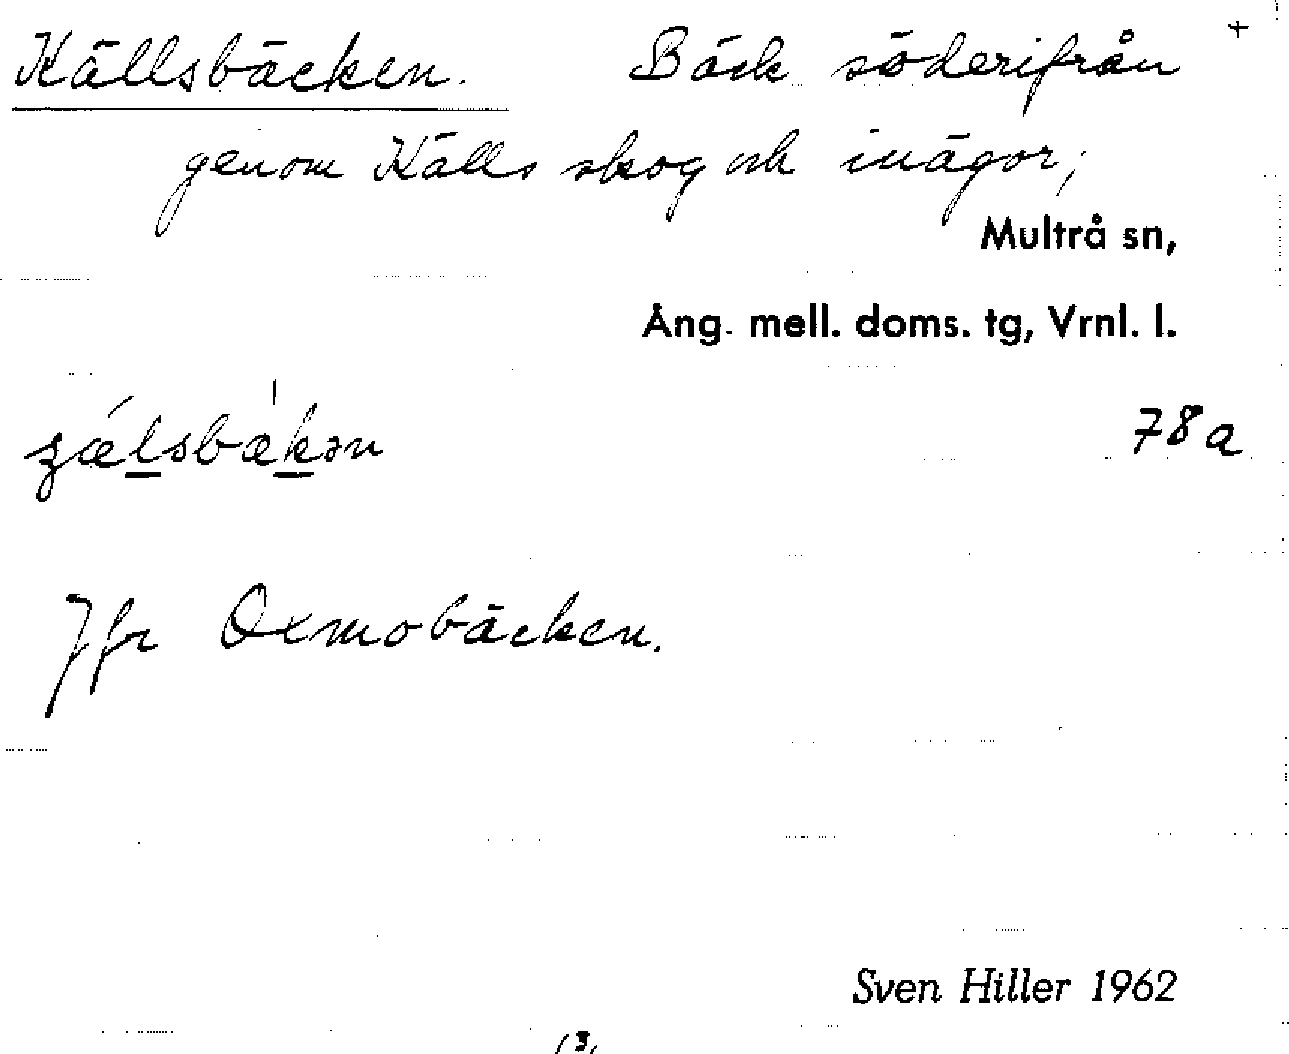 Källsbäcken. Bäck söderifrån +
genom Källs skog och inägor;
Multrå sn,
Ång. mell. doms. tg, Vrnl. l.
78a
Jfr Oxmobäcken.
Sven Hiller 1962